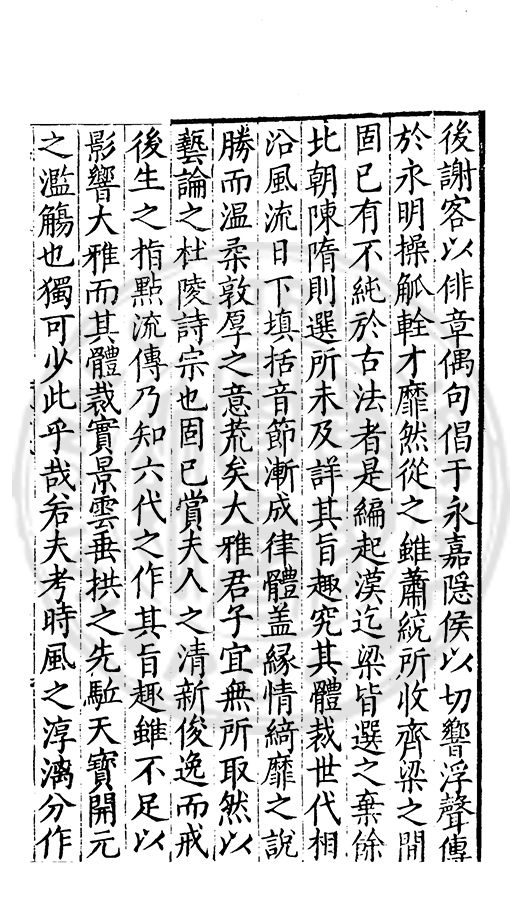 後謝客以俳章偶句倡于永嘉隠侯以切響浮聲傳
於永明操觚輇才靡然從之雖蕭統所收齊梁之間
固已有不純於古法者是編起漢迄梁皆選之棄餘
北朝陳隋則選所未及詳其旨趣究其體裁世代相
沿風流日下填括音節漸成律體盖緣情綺靡之說
勝而温柔敦厚之意荒矣大雅君子宜無所取然以
藝論之杜陵詩宗也固已賞夫人之清新俊逸而戒
後生之指㸃流傳乃知六代之作其旨趣雖不足以
影響大雅而其體裁實景雲垂拱之先駈天寶開元
之濫觴也獨可少此乎哉若夫考時風之淳漓分作